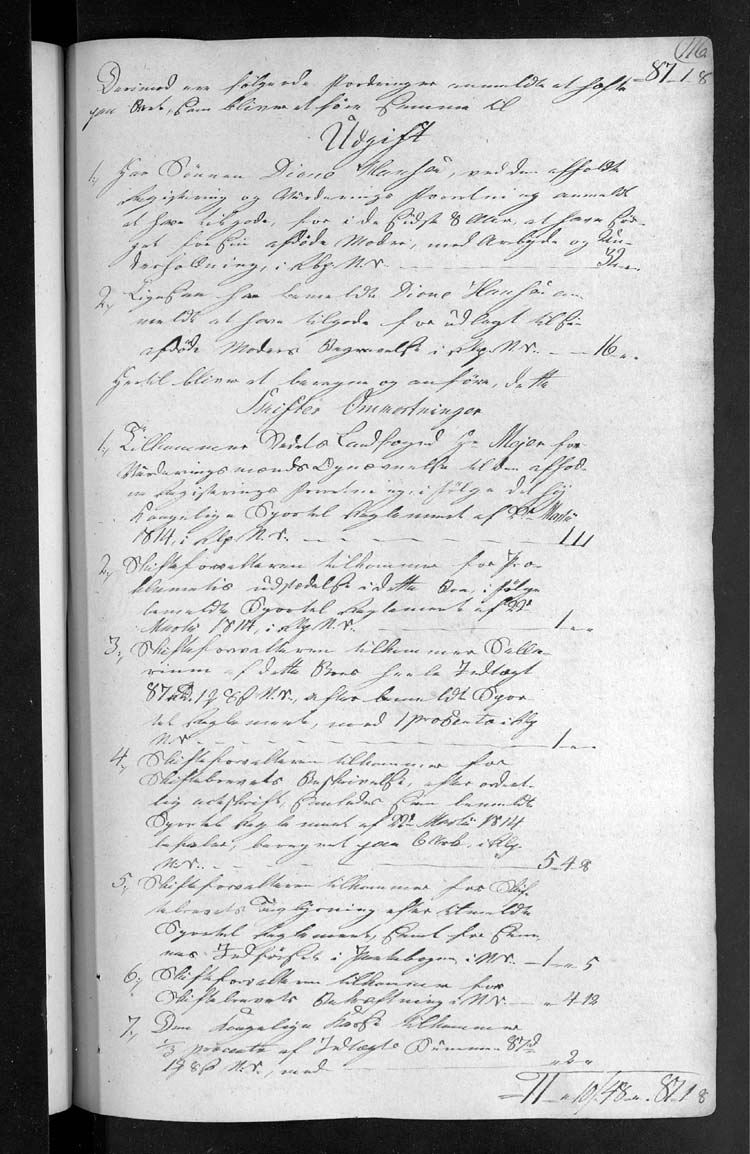 116
Derimod ere følgende Fordringer anmeldte at hæfte 87 1 8
paa Boet, som bliver at føre Summa til
Udgift
1, Har Sønnen Diono Hansen, ved den afholdte
Registering og Vurderings Forretning anmeldt
at have tilgode, for i de sidste 8 Aar, at have sør-
get for sin afdøde Moder, med Arbeyde og Un-
derholdning, i Rbp. N.V. 32 „ „
2, Ligesaa har bemeldte Diono Hansen an-
meldt at have tilgode for udlagt til sin
afdøde Moders Begravelse i Rbp. N.V. 16 „ „
Hertil bliver at beregne og anføre, dette
Skiftes Omkostninger
1, Tilkommer Sysselets Landfoged Hr Mejer for
Vurderingsmænds Udnævnelse til den afhold-
ne Registerings Forretning, i følge det høj
Kongelige Sportel Reglement af 22de Martii
1814, i Rbp. N.V.
2, Skifteforvalteren tilkommer for Pro-
klamatis udstædelse i dette Boe, i følge
bemeldte Sportel Reglement af 22de
Martii 1814, i Rbp. N.V. 1 „ „
3, Skifteforvalteren tilkommer Salla-
rium af dette Boes heele Indtægt
87 rbd. 1 8 s N.V., efter bemeldte Spor-
tel Reglement, med 1 procento i Rbp
N.V. 1 „ „
4, Skifteforvalteren tilkommer for
Skiftebrevets Beskrivelse, efter ordent-
lig udskrift, saaledes som bemeldte
Sportel Reglement af 22de Martii 1814
befaler, beregnet paa 6 Ark, i Rbp.
N.V. 5 4 8
5, Skifteforvalteren tilkommer for Skif-
tebrevets Tinglysning efter bemeldte
Sportel Reglement, samt for sam-
mes Indførsel i Pantebogen, i N.V. 1 „ 5
6, Skifteforvalteren tilkommer for
Skiftebrevets Bekræftning i N.V. „ 4 12
7, Den Kongelige Kasse tilkommer
1/3 procento af Indtægts Summen 87 rbd
1 8 s N.V., med „ 2 „
48 „ „ 87 1 8